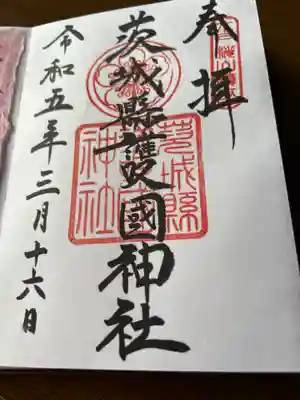 奉拝
茨城縣護國神社
茨城縣
神社
令和五年三月十六日